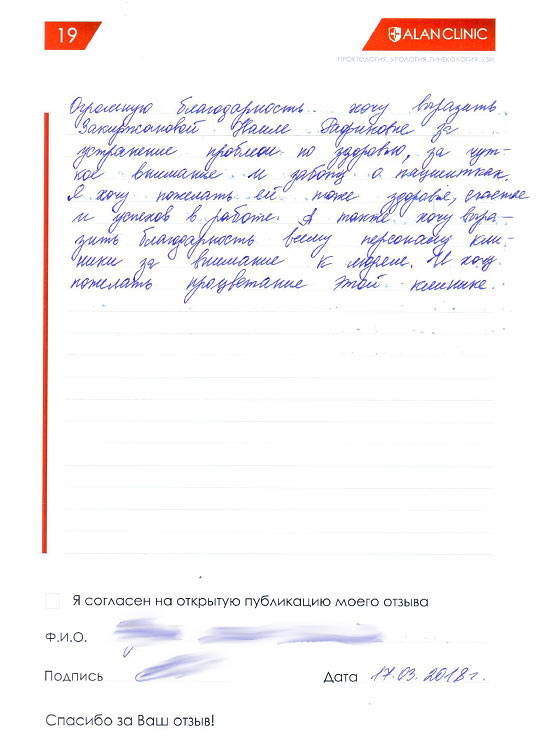 19
ALAN CLINIC
ПРОКТОЛОГИЯ, УРОЛОГИЯ, ГИНЕКОЛОГИЯ, УЗИ
Огромную благодарность хочу выразить
Закиржановой Наиле Рафиковне за
устранение проблем по здоровью, за чут-
кое внимание и заботу о пациентках.
Я хочу пожелать ей тоже здоровья, счастье
и успехов в работе. А также хочу выра-
зить благодарность всему персоналу кли-
ники за внимание к людям. И хочу
пожелать процветание этой клинике.
Я согласен на открытую публикацию моего отзыва
Ф.И.О.
Подпись
Дата 17.03.2018г.
Спасибо за Ваш отзыв!